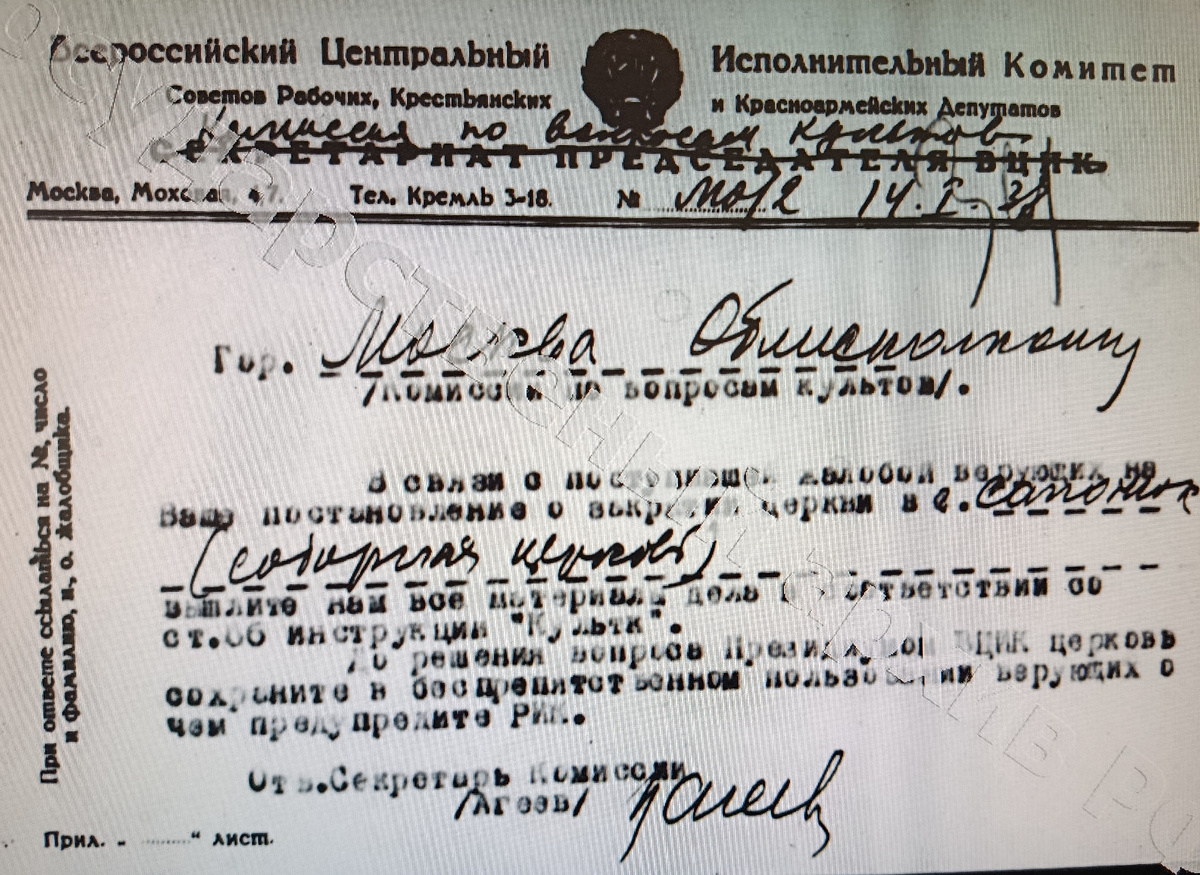 Всероссийский Центральный Исполнительный Комитет
Советов Рабочих, Крестьянских и Красноармейских Депутатов
Комиссия по вопросам культов
СЕКРЕТАРИАТ ПРЕДСЕДАТЕЛЯ ВЦИК
Москва, Моховая, 7. Тел. Кремль 3-18. № 14.I.38
Гор. Москва Облисполком
/Комиссии по вопросам культов/.
В связи с поступившей жалобой верующих на
Ваше постановление о закрытии церкви в с. Сапожок
(соборная церковь)
вышлите нам все материалы дела в соответствии со
ст.66 инструкции "Культк".
До решения вопроса Президиумом ВЦИК церковь
сохраните в беспрепятственном пользовании верующих о
чем предупредите РИК.
Отв.Секретарь Комиссии
/Агеев/ Агеев
Прил. - " лист.
При ответе ссылаться на №, число
и фамилию, и., о. жалобщика.
Государственный архив